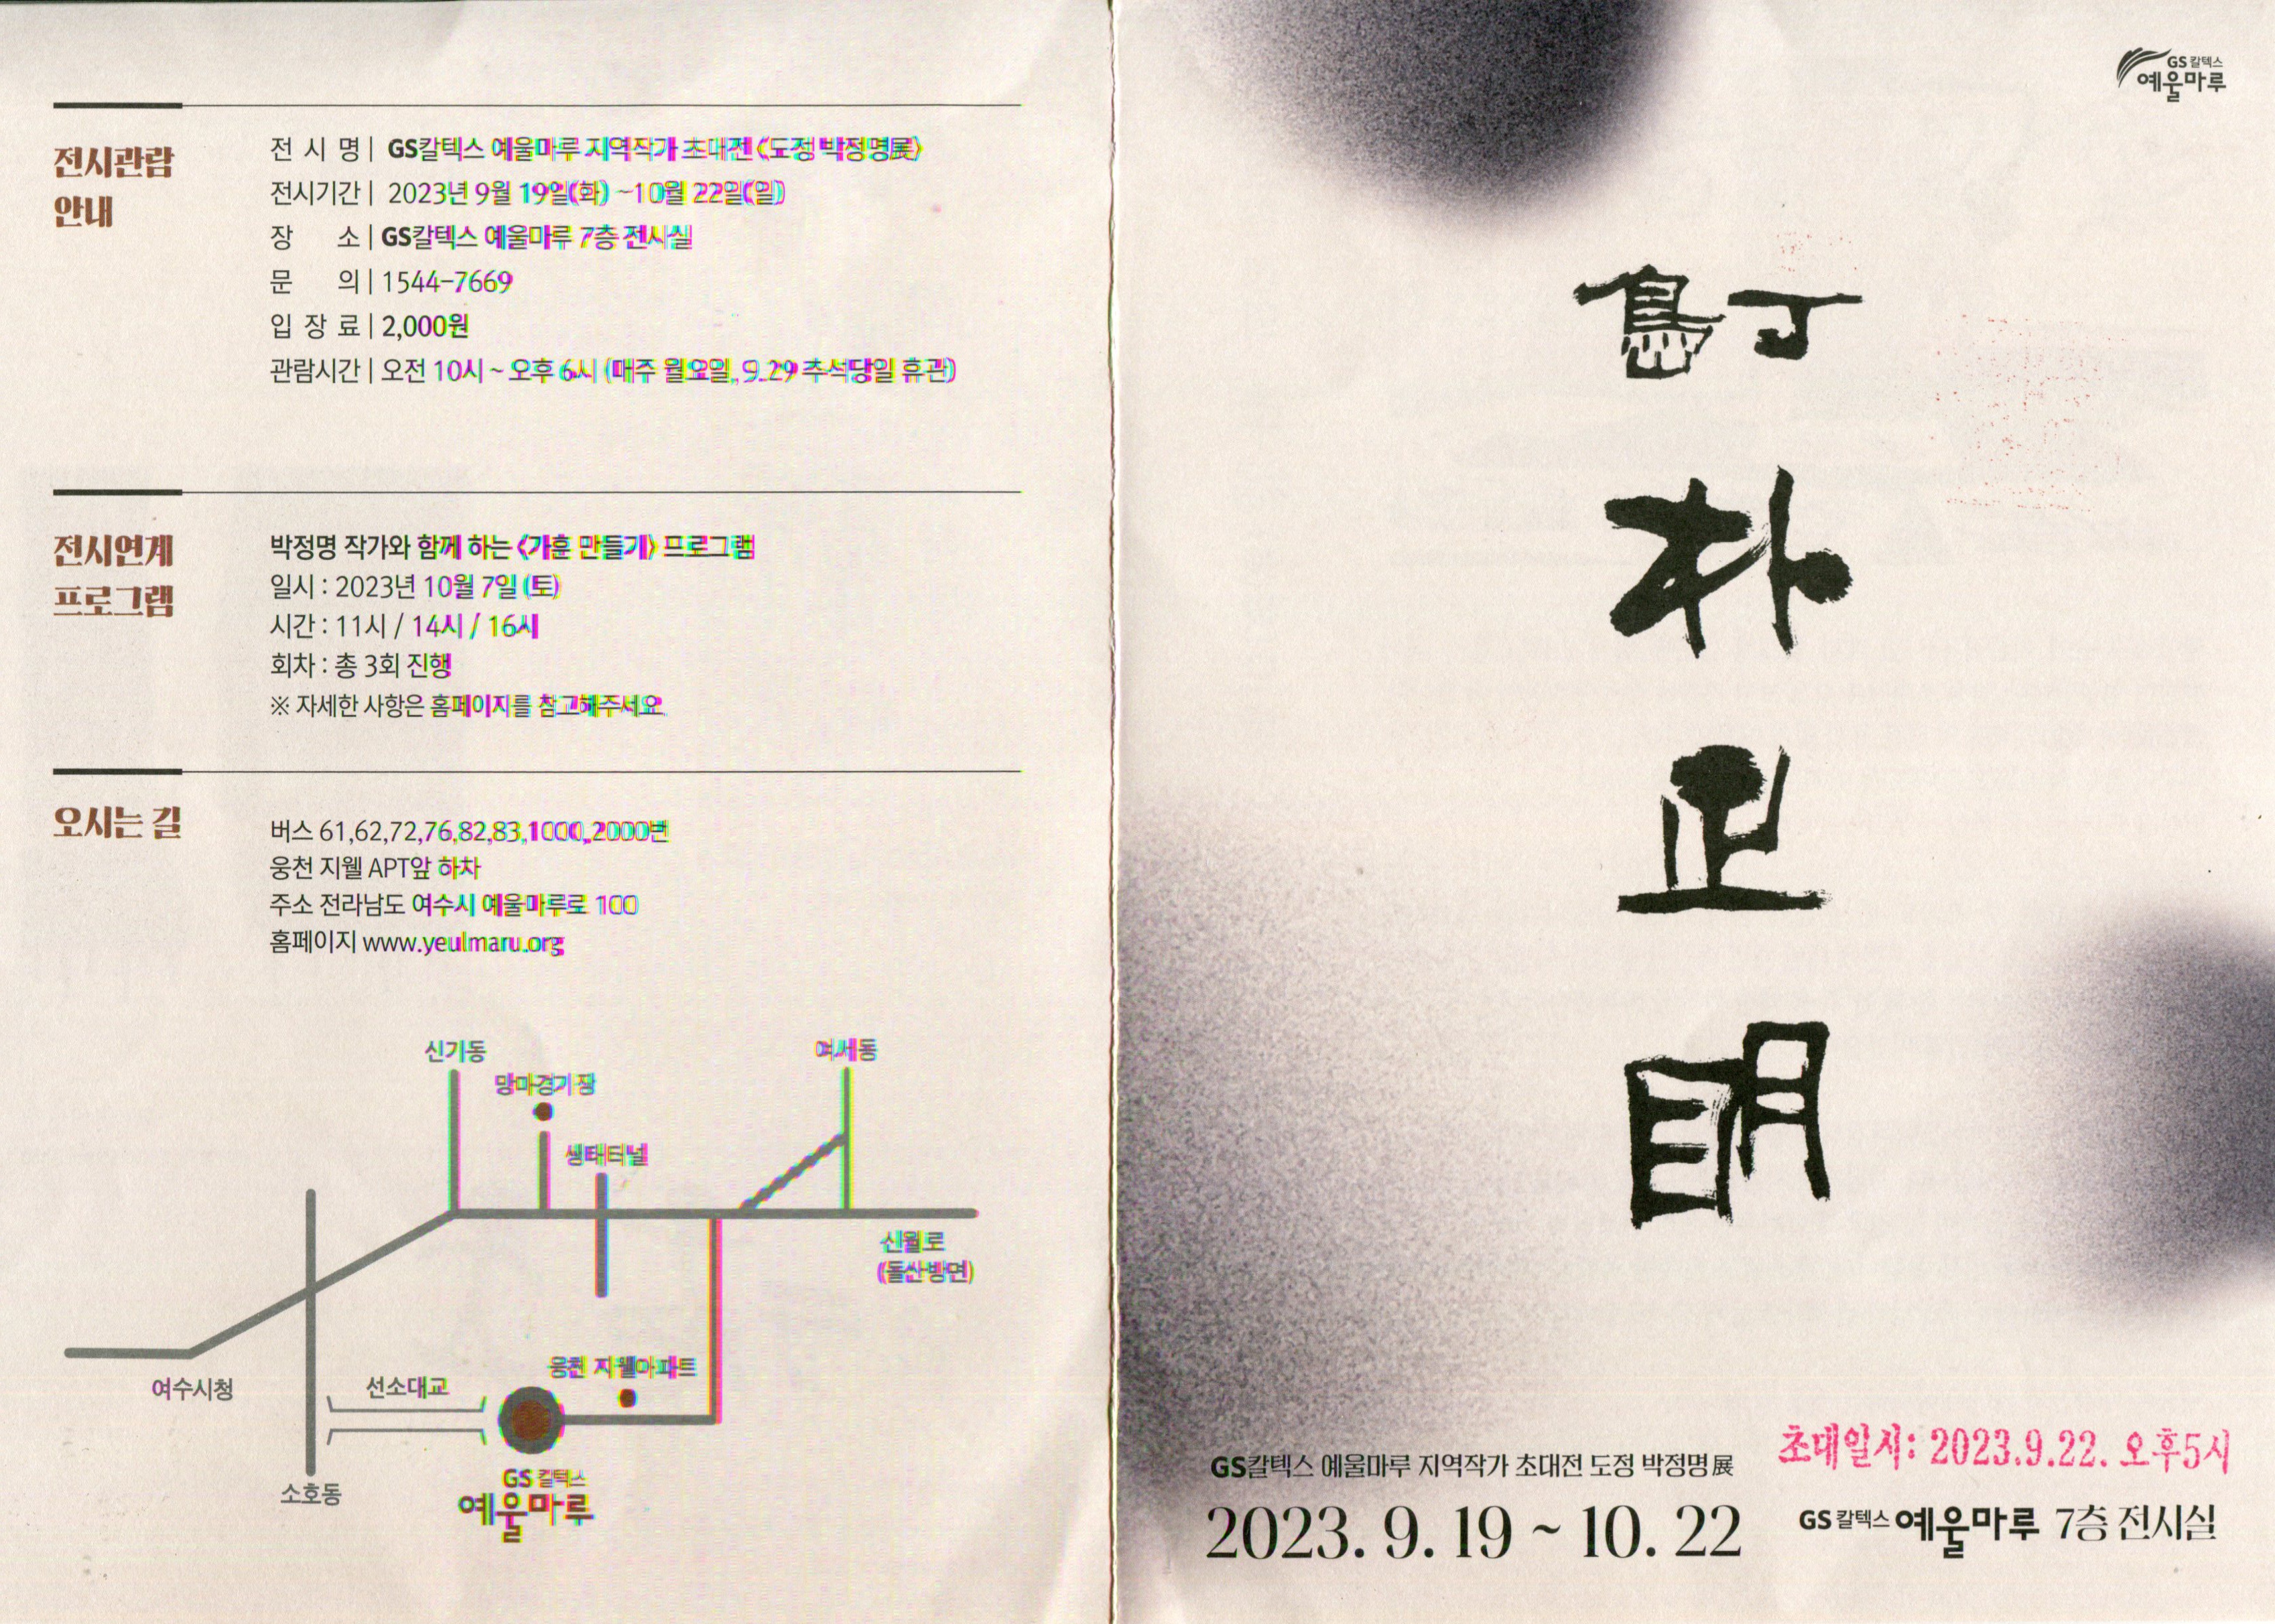 전시관람
안내
전 시 명 | GS칼텍스 예울마루 지역작가 초대전 〈도정 박정명展〉
전시기간 | 2023년 9월 19일(화) ~10월 22일(일)
장 소 | GS칼텍스 예울마루 7층 전시실
문 의 | 1544-7669
입 장 료 | 2,000원
관람시간 | 오전 10시 ~ 오후 6시 (매주 월요일, 9.29 추석당일 휴관)
전시연계
프로그램
박정명 작가와 함께 하는 〈가훈 만들기〉 프로그램
일시 : 2023년 10월 7일 (토)
시간 : 11시 / 14시 / 16시
회차 : 총 3회 진행
※ 자세한 사항은 홈페이지를 참고해주세요.
오시는 길
버스 61,62,72,76,82,83,1000,2000번
웅천 지웰 APT앞 하차
주소 전라남도 여수시 예울마루로 100
홈페이지 www.yeulmaru.org
신기동
망마경기장
여서동
생태터널
신월로
(돌산방면)
웅천 지웰아파트
여수시청
선소대교
소호동
GS 칼텍스
예울마루
GS 칼텍스
예울마루
朴
正
明
초대일시: 2023.9.22. 오후5시
GS칼텍스 예울마루 지역작가 초대전 도정 박정명展
2023. 9. 19 ~ 10. 22
GS 칼텍스 예울마루 7층 전시실